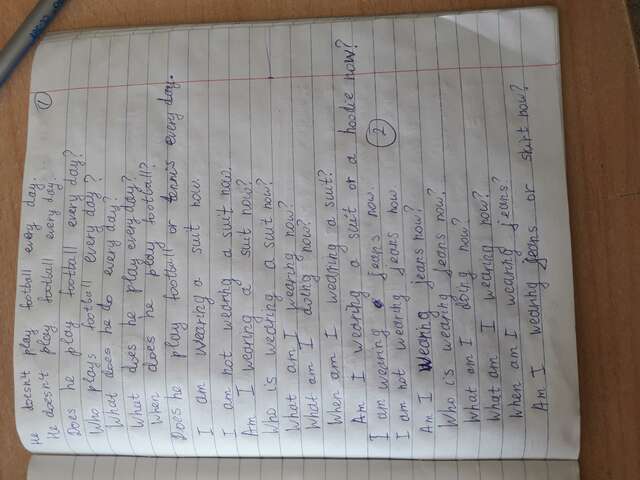 He doesn't play football every day.
He doesn't play football every day.
Does he play football every day?
Who plays football every day?
What does he do every day?
What does he play every day?
When does he play football?
Does he play football or tennis every day.
1
I am wearing a suit now.
I am not wearing a suit now.
Am I wearing a suit now?
Who is wearing a suit now?
What am I wearing now?
What am I doing now?
When am I wearing a suit?
Am I wearing a suit or a hoodie now?
2
I am wearing jeans now.
I am not wearing jeans now
Am I wearing jeans now?
Who is wearing jeans now?
What am I doing now?
What am I wearing now?
When am I wearing jeans?
Am I wearing jeans or skirt now?